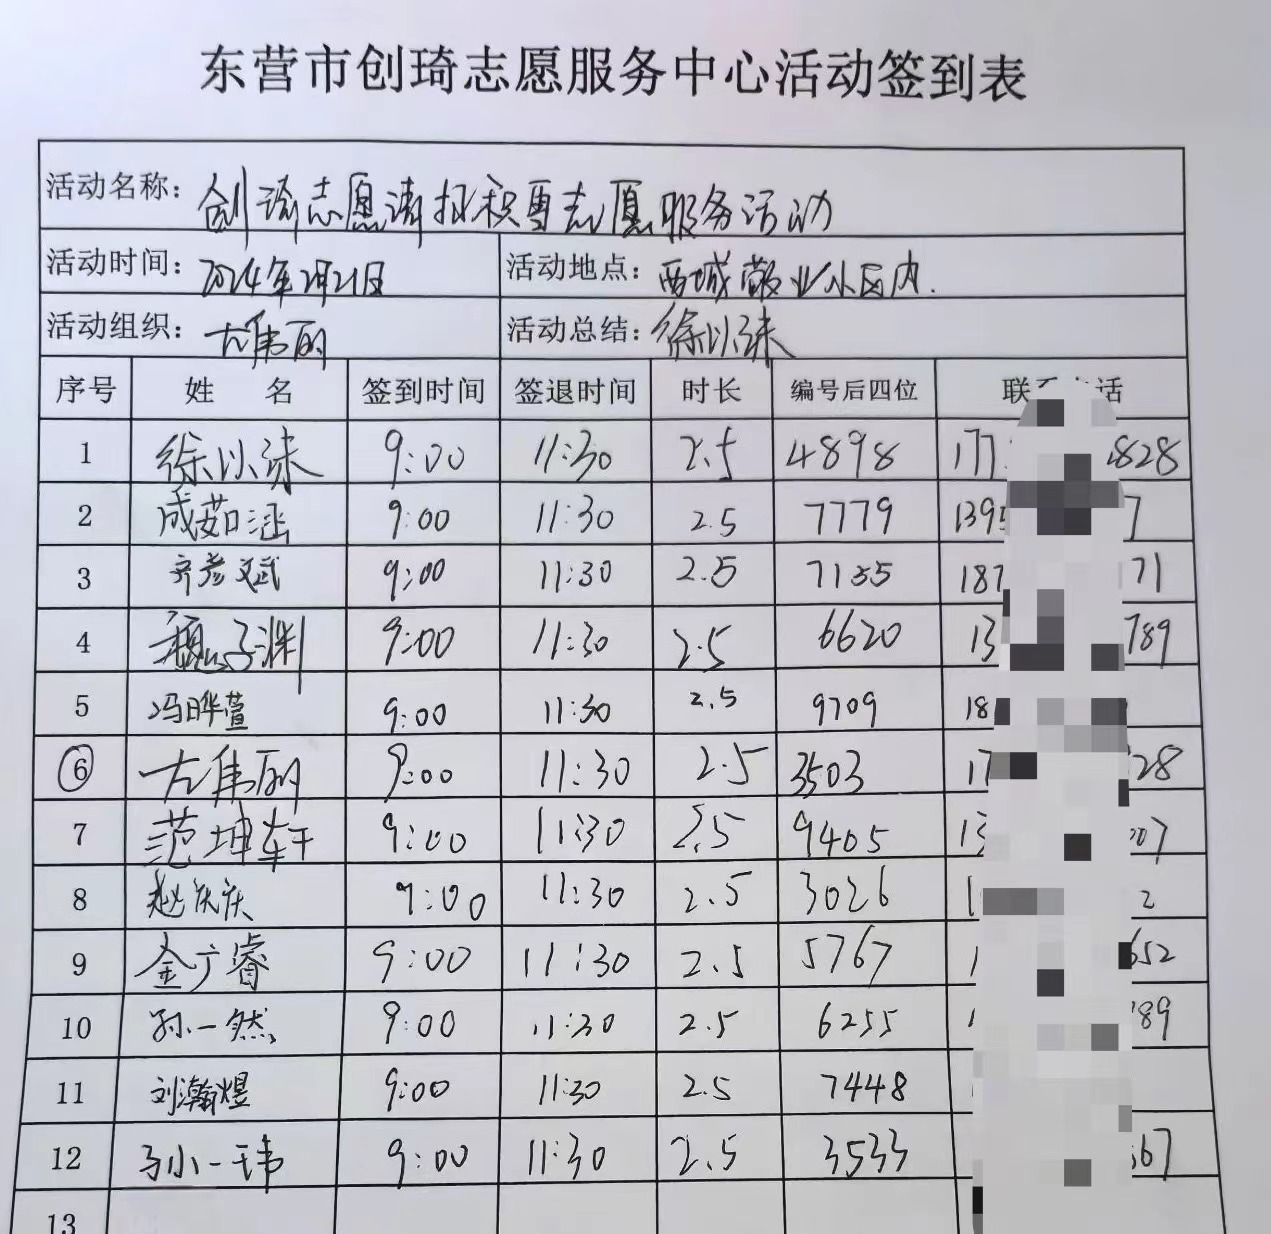 东营市创琦志愿服务中心活动签到表
活动名称：创琦志愿清扫积雪志愿服务活动
活动时间：2024年2月21日 活动地点：西城敬业小区内.
活动组织：左伟丽 活动总结：徐以沫
序号 姓 名 签到时间 签退时间 时长 编号后四位 联 话
1 徐以沫 9:00 11:30 2.5 4898 177 828
2 成茹涵 9:00 11:30 2.5 7779 1395 7
3 齐彦斌 9:00 11:30 2.5 7155 187 71
4 子渊 9:00 11:30 2.5 6620 13 789
5 冯晔萱 9:00 11:30 2.5 9709 18
6 左伟丽 9:00 11:30 2.5 3503 17 28
7 范坤轩 9:00 11:30 2.5 9405 13 07
8 赵庆庆 9:00 11:30 2.5 3026 1 2
9 金广睿 9:00 11:30 2.5 5767 1 652
10 孙一然 9:00 11:30 2.5 6255 1 89
11 刘瀚煜 9:00 11:30 2.5 7448
12 孙一玮 9:00 11:30 2.5 3533 67
13